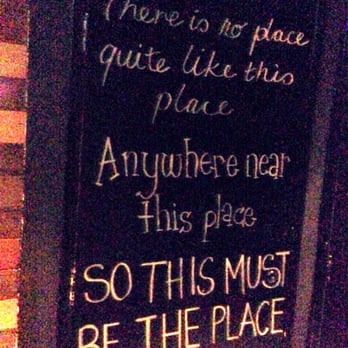 There is no place
quite like this
place
Anywhere near
this place
SO THIS MUST
BE THE PLACE.